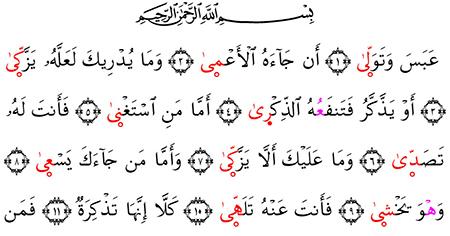 بِسْمِ اللَّهِ الرَّحْمَٰنِ الرَّحِيمِ
عَبَسَ وَتَوَلَّىٰ ﴿١﴾ أَن جَآءَهُ الْأَعْمِىٰ ﴿٢﴾ وَمَا يُدْرِيكَ لَعَلَّهُۥ يَزَّكِّىٰ
﴿٣﴾ أَوْ يَذَّكَّرُ فَتَنفَعُهُ الذِّكْرِىٰ ﴿٤﴾ أَمَّا مَنِ اسْتَغْنِىٰ ﴿٥﴾ فَأَنتَ لَهُۥ
تَصَدِّىٰ ﴿٦﴾ وَمَا عَلَيْكَ أَلَّا يَزَّكِّىٰ ﴿٧﴾ وَأَمَّا مَن جَآءَكَ يَسْعِىٰ ﴿٨﴾
وَهْوَ يَخْشِىٰ ﴿٩﴾ فَأَنتَ عَنْهُ تَلَهِّىٰ ﴿١٠﴾ كَلَّا إِنَّهَا تَذْكِرَةٌ ﴿١١﴾ فَمَن